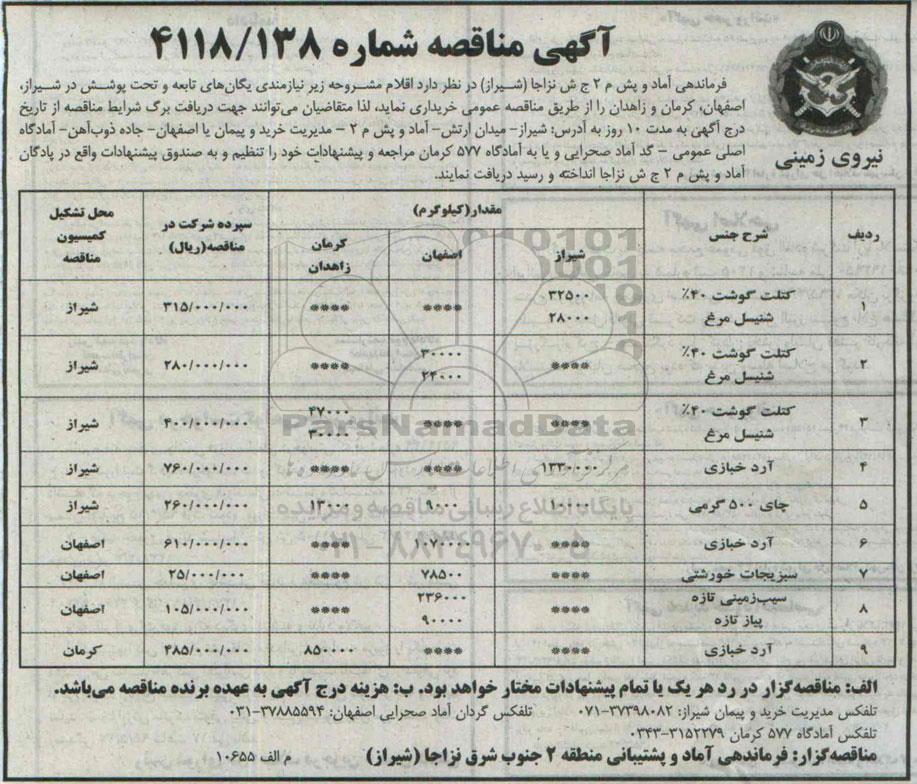 آگهی مناقصه شماره ۴۱۱۸/۱۳۸
نیروی زمینی
فرماندهی آماد و پش م ۲ ج ش نزاجا (شیراز) در نظر دارد اقلام مشروحه زیر نیازمندی یگان‌های تابعه و تحت پوشش در شیراز،
اصفهان، کرمان و زاهدان را از طریق مناقصه عمومی خریداری نماید، لذا متقاضیان می‌توانند جهت دریافت برگ شرایط مناقصه از تاریخ
درج آگهی به مدت ۱۰ روز به آدرس: شیراز- میدان ارتش- آماد و پش م ۲ – مدیریت خرید و پیمان یا اصفهان- جاده ذوب‌آهن- آمادگاه
اصلی عمومی – گد آماد صحرایی و یا به آمادگاه ۵۷۷ کرمان مراجعه و پیشنهادات خود را تنظیم و به صندوق پیشنهادات واقع در پادگان
آماد و پش م ۲ ج ش نزاجا انداخته و رسید دریافت نمایند.
ردیف شرح جنس مقدار(کیلوگرم) سپرده شرکت در مناقصه(ریال) محل تشکیل کمیسیون مناقصه
شیراز اصفهان کرمان زاهدان
۱ کتلت گوشت ۴۰٪ ۳۲۵۰۰ **** **** ۳۱۵/۰۰۰/۰۰۰ شیراز
شنیسل مرغ ۲۸۰۰۰
۲ کتلت گوشت ۴۰٪ **** ۳۰۰۰۰ **** ۲۸۰/۰۰۰/۰۰۰ شیراز
شنیسل مرغ ۲۴۰۰۰
۳ کتلت گوشت ۴۰٪ **** **** ۴۷۰۰۰ ۴۰۰/۰۰۰/۰۰۰ شیراز
شنیسل مرغ ۳۰۰۰۰
۴ آرد خبازی ۱۳۳۰۰۰۰ **** **** ۷۶۰/۰۰۰/۰۰۰ شیراز
۵ چای ۵۰۰ گرمی ۱۰۰۰۰ ۹۰۰۰ ۱۳۰۰۰ ۲۶۰/۰۰۰/۰۰۰ شیراز
۶ آرد خبازی **** **** ۶۱۰/۰۰۰/۰۰۰ اصفهان
۷ سبزیجات خورشتی **** ۷۸۵۰۰ **** ۲۵/۰۰۰/۰۰۰ اصفهان
۸ سیب‌زمینی تازه **** ۲۳۶۰۰۰ **** ۱۰۵/۰۰۰/۰۰۰ اصفهان
پیاز تازه ۹۰۰۰۰
۹ آرد خبازی **** **** ۸۵۰۰۰۰ ۴۸۵/۰۰۰/۰۰۰ کرمان
ParsNamadData
پایگاه اطلاع رسانی مناقصه و مزایده
الف: مناقصه‌گزار در رد هر یک یا تمام پیشنهادات مختار خواهد بود. ب: هزینه درج آگهی به عهده برنده مناقصه می‌باشد.
تلفکس مدیریت خرید و پیمان شیراز: ۳۷۳۹۸۰۸۲-۰۷۱ تلفکس گردان آماد صحرایی اصفهان: ۳۷۸۸۵۵۹۴-۰۳۱
تلفکس آمادگاه ۵۷۷ کرمان ۳۱۵۲۲۷۹-۰۳۴۳
مناقصه‌گزار: فرماندهی آماد و پشتیبانی منطقه ۲ جنوب شرق نزاجا (شیراز) م الف ۱۰۶۵۵